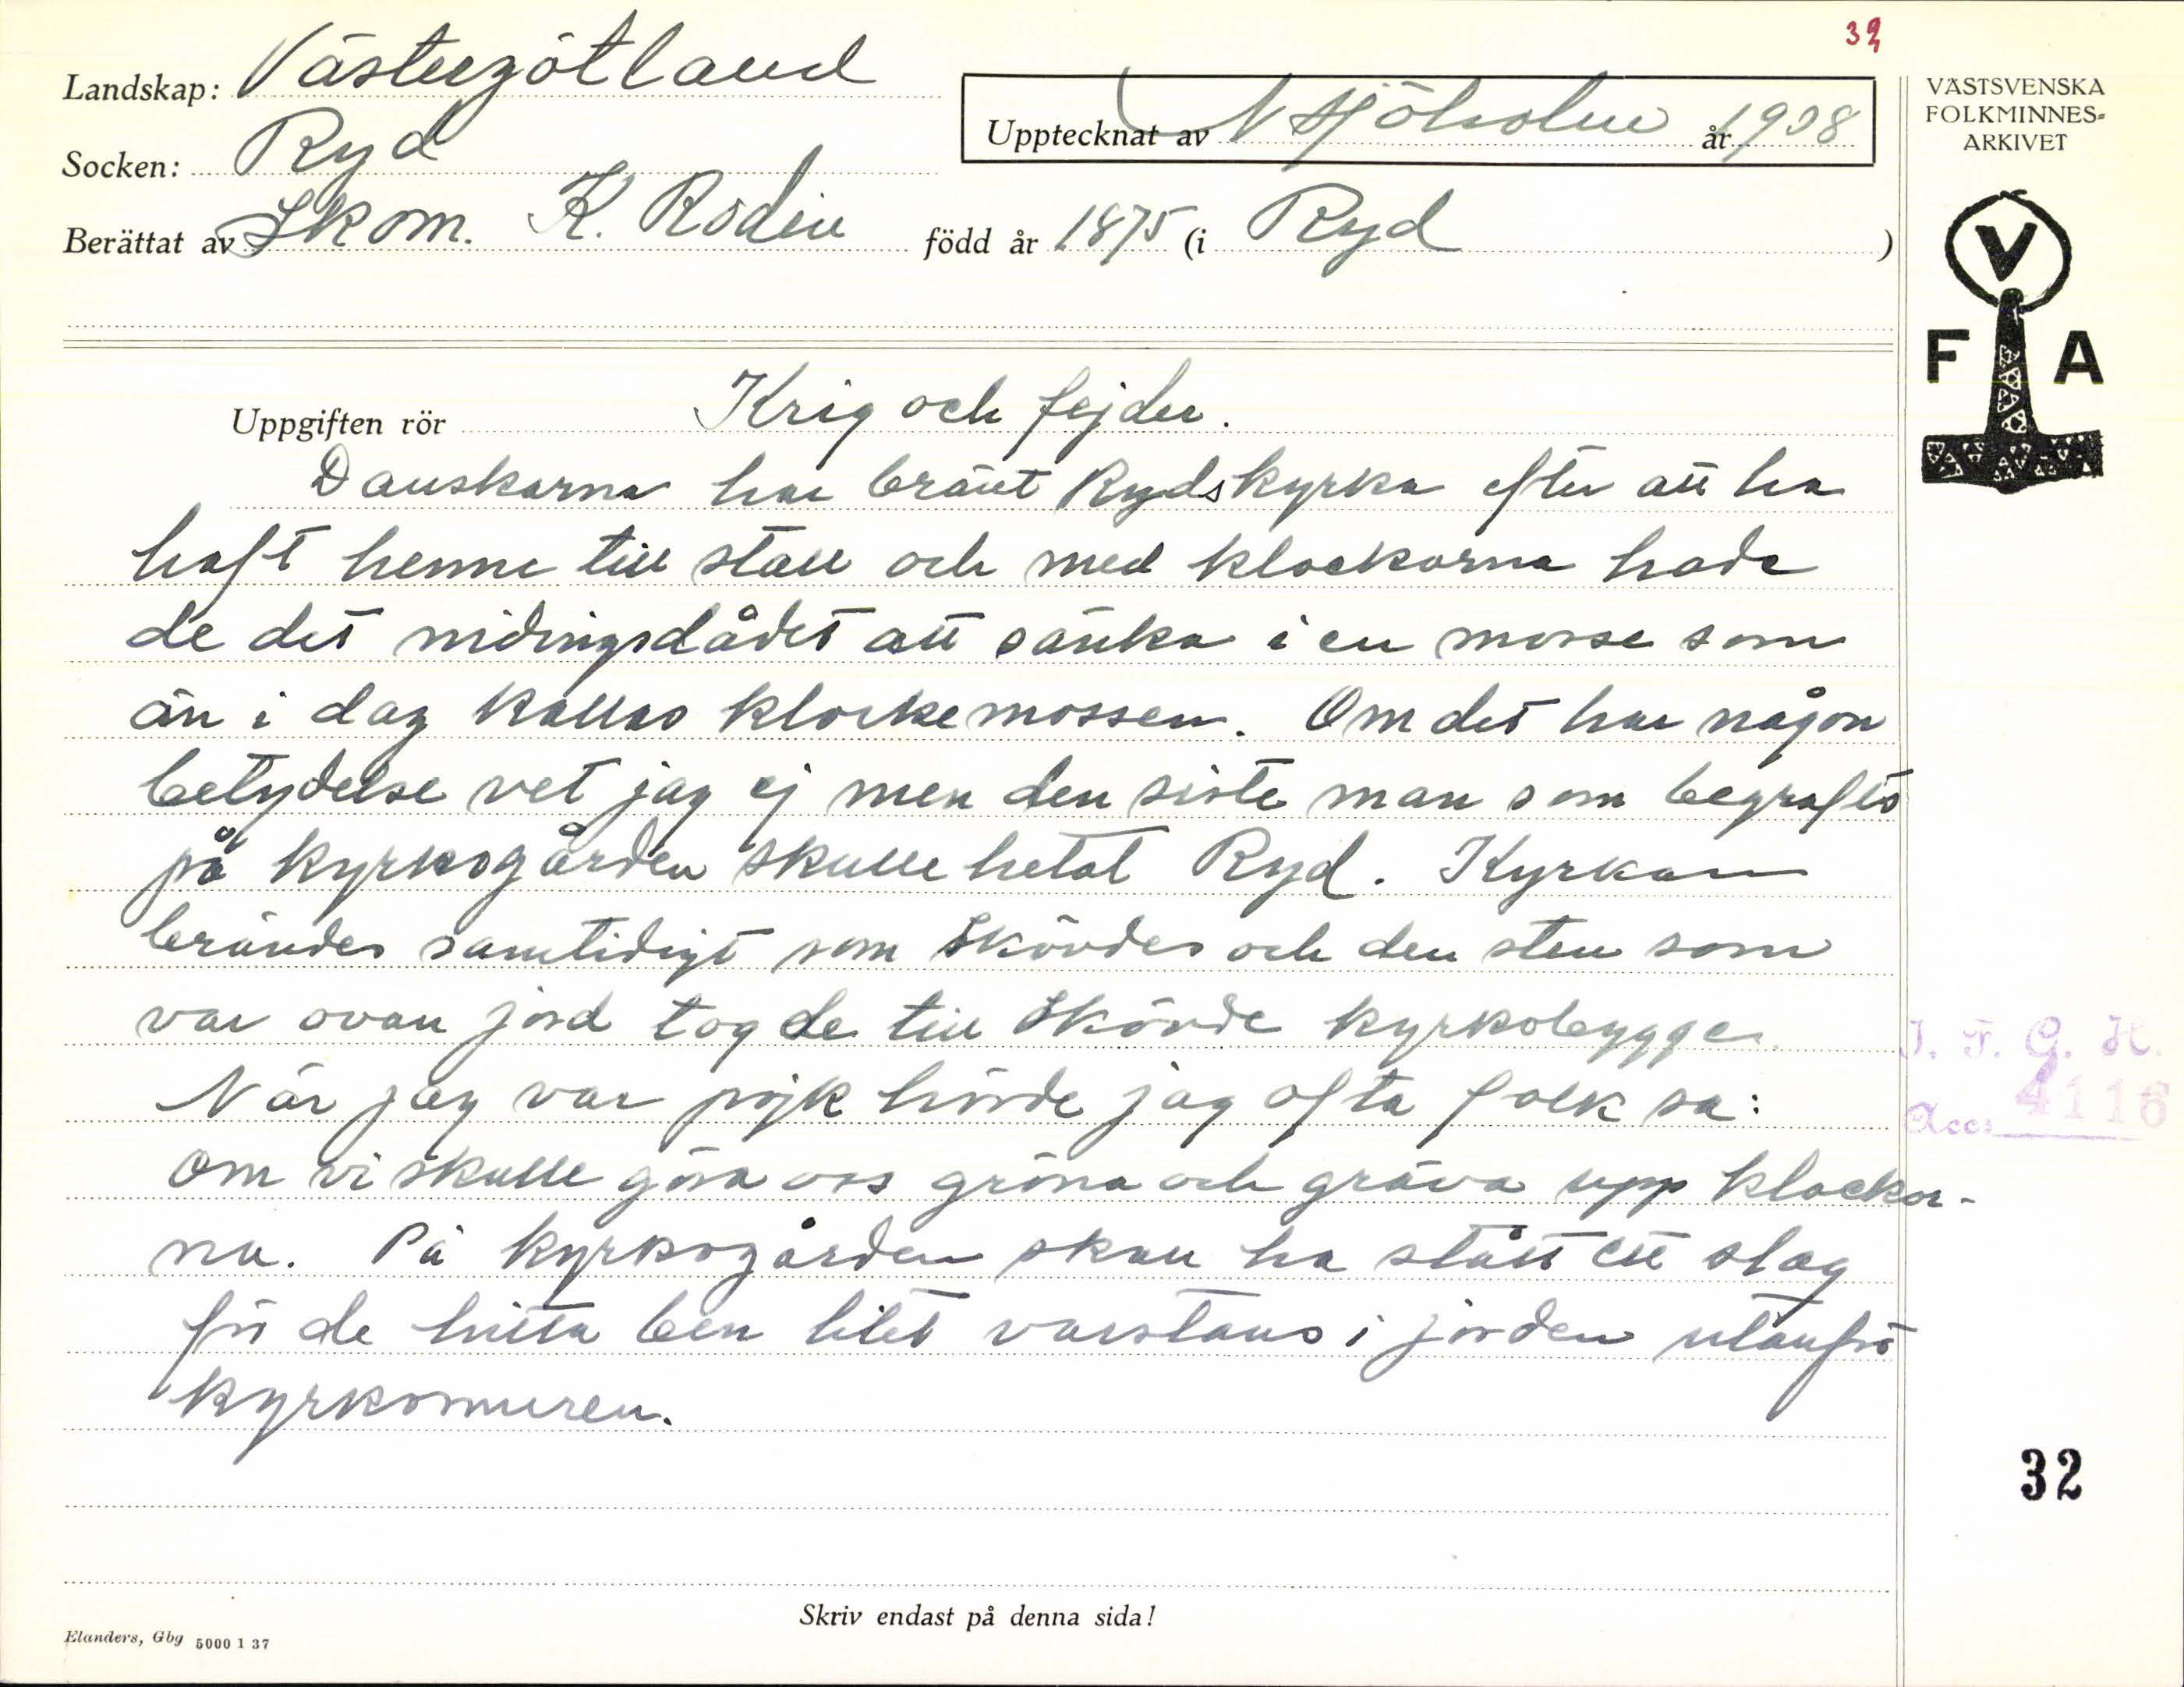 32
Landskap: Västergötland
Upptecknat av N Sjöholm år 1938
VÄSTSVENSKA
FOLKMINNES=
ARKIVET
Socken: Ryd
Berättat av Skom. K. Rodin född år 1875 (i Ryd )
V
F A
Uppgiften rör Krig och fejder.
Danskarna har bränt Ryds kyrka efter att ha
haft henne till stall och med klockorna hade
de det nidingsdådet att sänka i en mosse som
än i dag kallas klockemossen. Om det har någon
betydelse vet jag ej men den siste man som begrafts
på kyrkogården skulle hetat Ryd. Kyrkan
brändes samtidigt som Skövdes och den sten som
var ovan jord tog de till Skövde kyrkobygge.
När jag var pojk hörde jag ofta folk sa:
Om vi skulle göra oss gröna och gräva upp klockor-
na. På kyrkogården skall ha stått ett slag
för de hitta ben litet varstans i jorden utanför
kyrkomuren.
I. F. G. H.
Acc. 4116
32
Skriv endast på denna sida!
Elanders, Gbg 5000 1 37